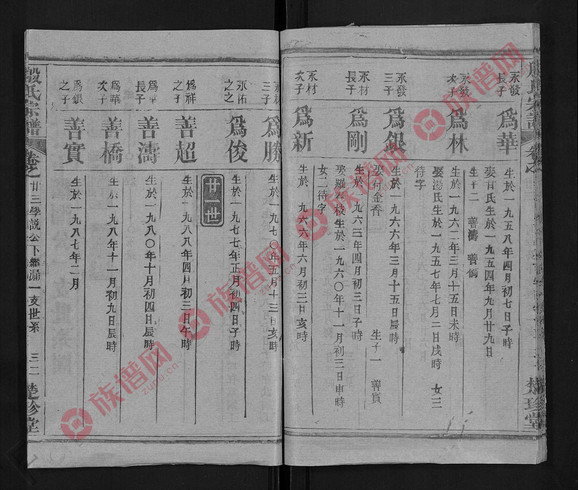 永發
長子
為華
生於一九五八年四月初七日子時
娶育氏生於一九五四年九月廿九日
生子二 善濤 善橋
永發
次子
為林
生於一九六二年三月十五日未時
娶湯氏生於一九五七年七月二日戌時 女三
待字
永發
三子
為銀
生於一九六六年三月十五日辰時
娶何金香 生子一 善實
永材
長子
為剛
生於一九六三年四月初三日子時
娶羅六枝生於一九六〇年十一月初三日申時
女二待字
永材
次子
為新
生於一九六六年六月初三日亥時
永材
三子
為勝
生於一九七〇年五月十三日亥時
永佑
之子
為俊
生於一九七七年正月初四日子時
廿一世
為祥
之子
善超
生於一九八八年四月初三日午時
為華
長子
善濤
生於一九八〇年十月初四日辰時
為華
次子
善橋
生於一九八四年十一月初九日辰時
為銀
之子
善實
生於一九八七年二月
殷氏宗譜
廿三學說公下繼瀛一支世系
三二
楚珍堂
族谱网
zupu.cn